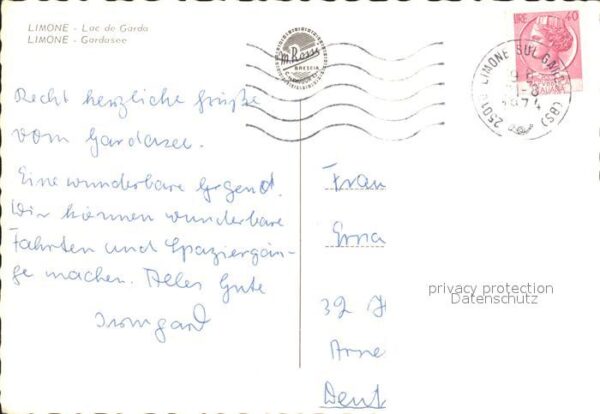 LIMONE - Lac de Garda
LIMONE - Gardasee
m. Rossi
BRESCIA
LIRE 40
ITALIANA
25010 LIMONE SUL GARDA (BS)
Recht herzliche Grüße
vom Gardasee.
Eine wunderbare Gegend.
Wir können wunderbare
Fahrten und Spaziergän-
ge machen. Alles Gute
Irmgard
Frau
Erna
32 H
Arne
Deut
privacy protection
Datenschutz